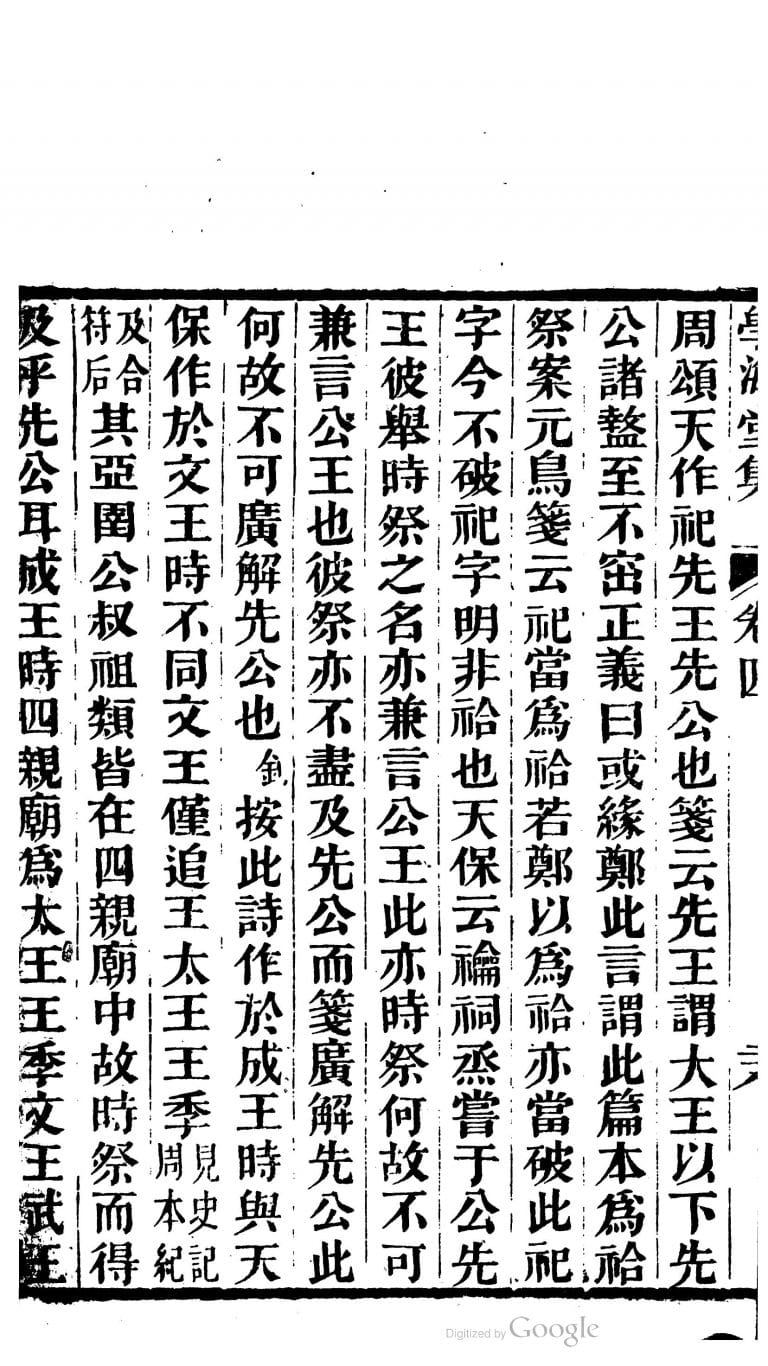 學海堂集 卷四 六
周頌天作祀先王先公也箋云先王謂大王以下先
公諸盩至不窋正義曰或緣鄭此言謂此篇本爲祫
祭案元鳥箋云祀當爲祫若鄭以爲祫亦當破此祀
字今不破祀字明非祫也天保云禴祠烝嘗于公先
王彼舉時祭之名亦兼言公王此亦時祭何故不可
兼言公王也彼祭亦不盡及先公而箋廣解先公此
何故不可廣解先公也 釗按此詩作於成王時與天
保作於文王時不同文王僅追王太王王季見史記周本紀
及合符后其亞圉公叔祖類皆在四親廟中故時祭而得
及乎先公耳成王時四親廟爲太王王季文王武王
Digitized by Google